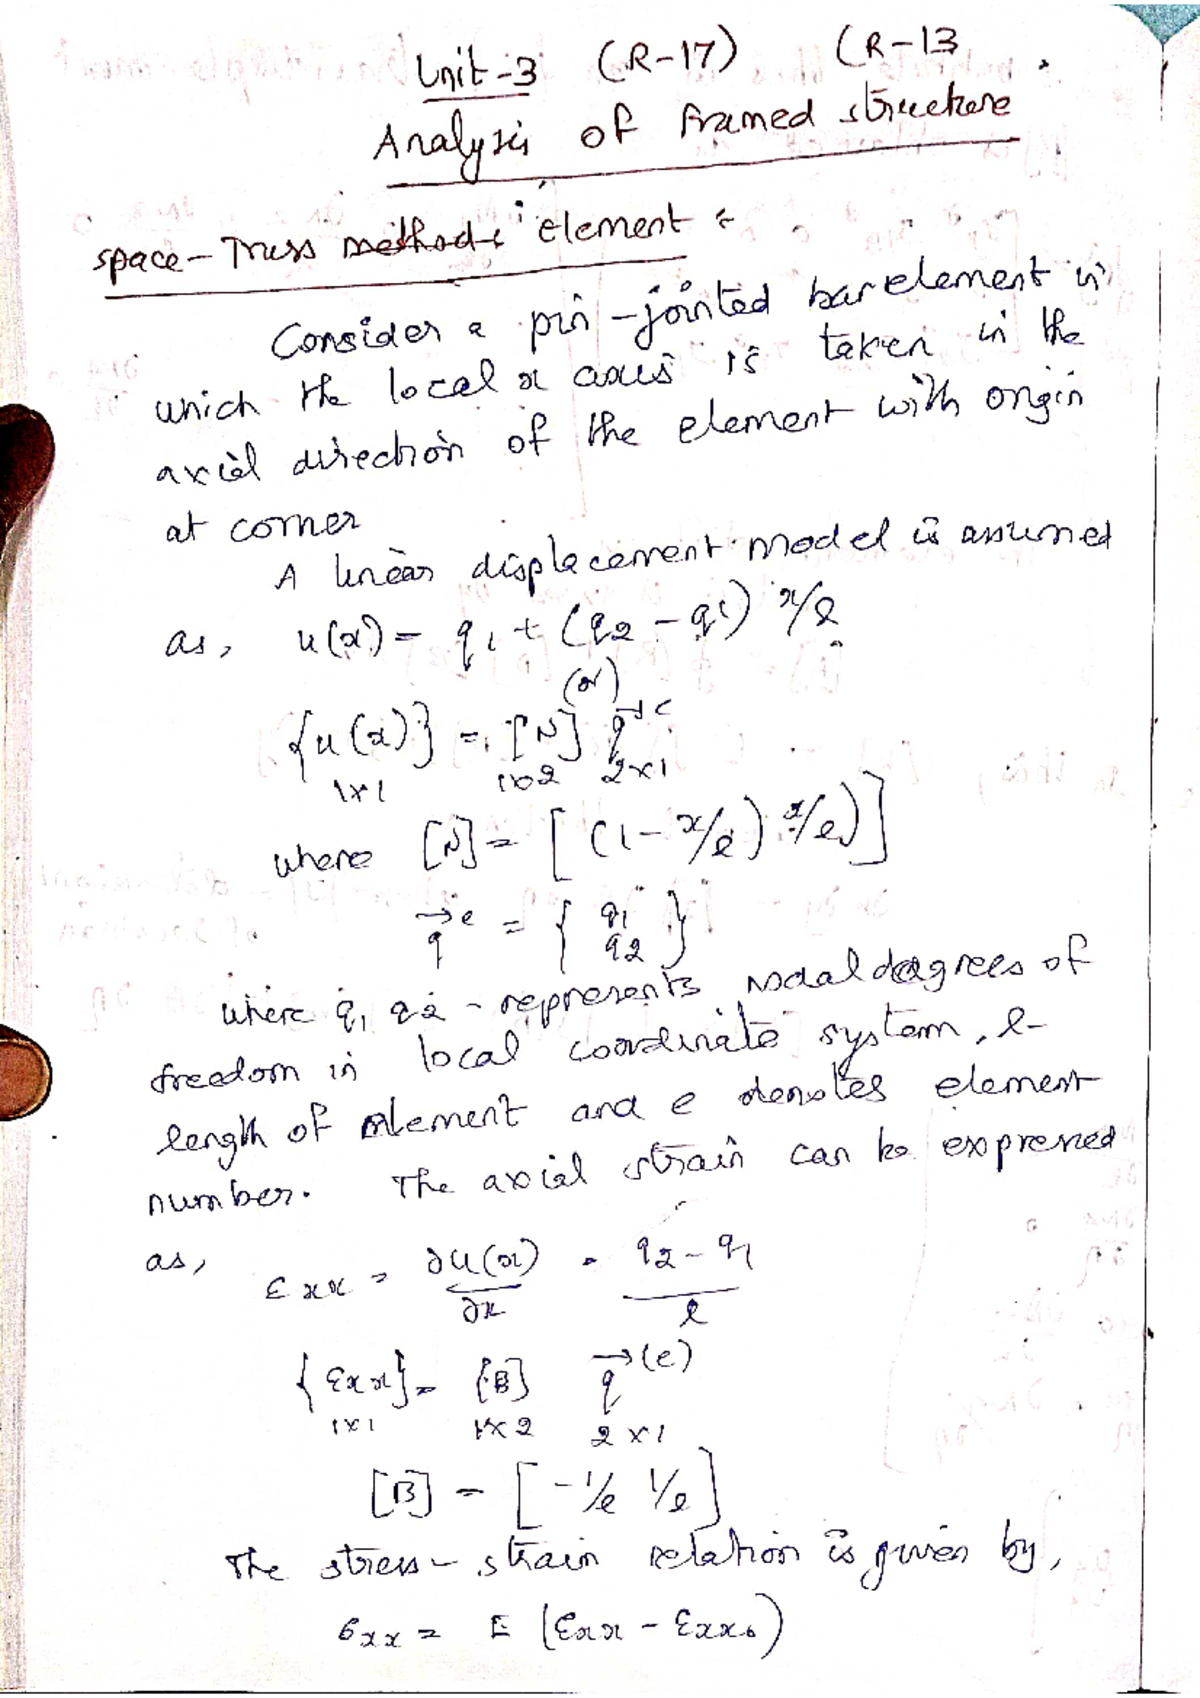 Unit-3 (R-17) (R-13
Analysis of Framed structure
space-Truss element :-
Consider a pin-jointed bar element in
which the local x axis is taken in the
axial direction of the element with origin
at corner
A linear displacement model is assumed
as, u(x) = q1 + (q2 - q1) x/l
(or)
{u(x)} = [N] q→e
1x1 1x2 2x1
where [N] = [(1-x/l) x/l)]
q→e = { q1 q2 }
where q1 q2 - represents nodal degrees of
freedom in local coordinate system, l-
length of element and e denotes element
number. The axial strain can be expressed
as, εxx = ∂u(x)/∂x = q2-q1/l
{εxx} = [B] q→(e)
1x1 1x2 2x1
[B] = [-1/l 1/l]
The stress-strain relation is given by,
σxx = E (εxx - εxx0)